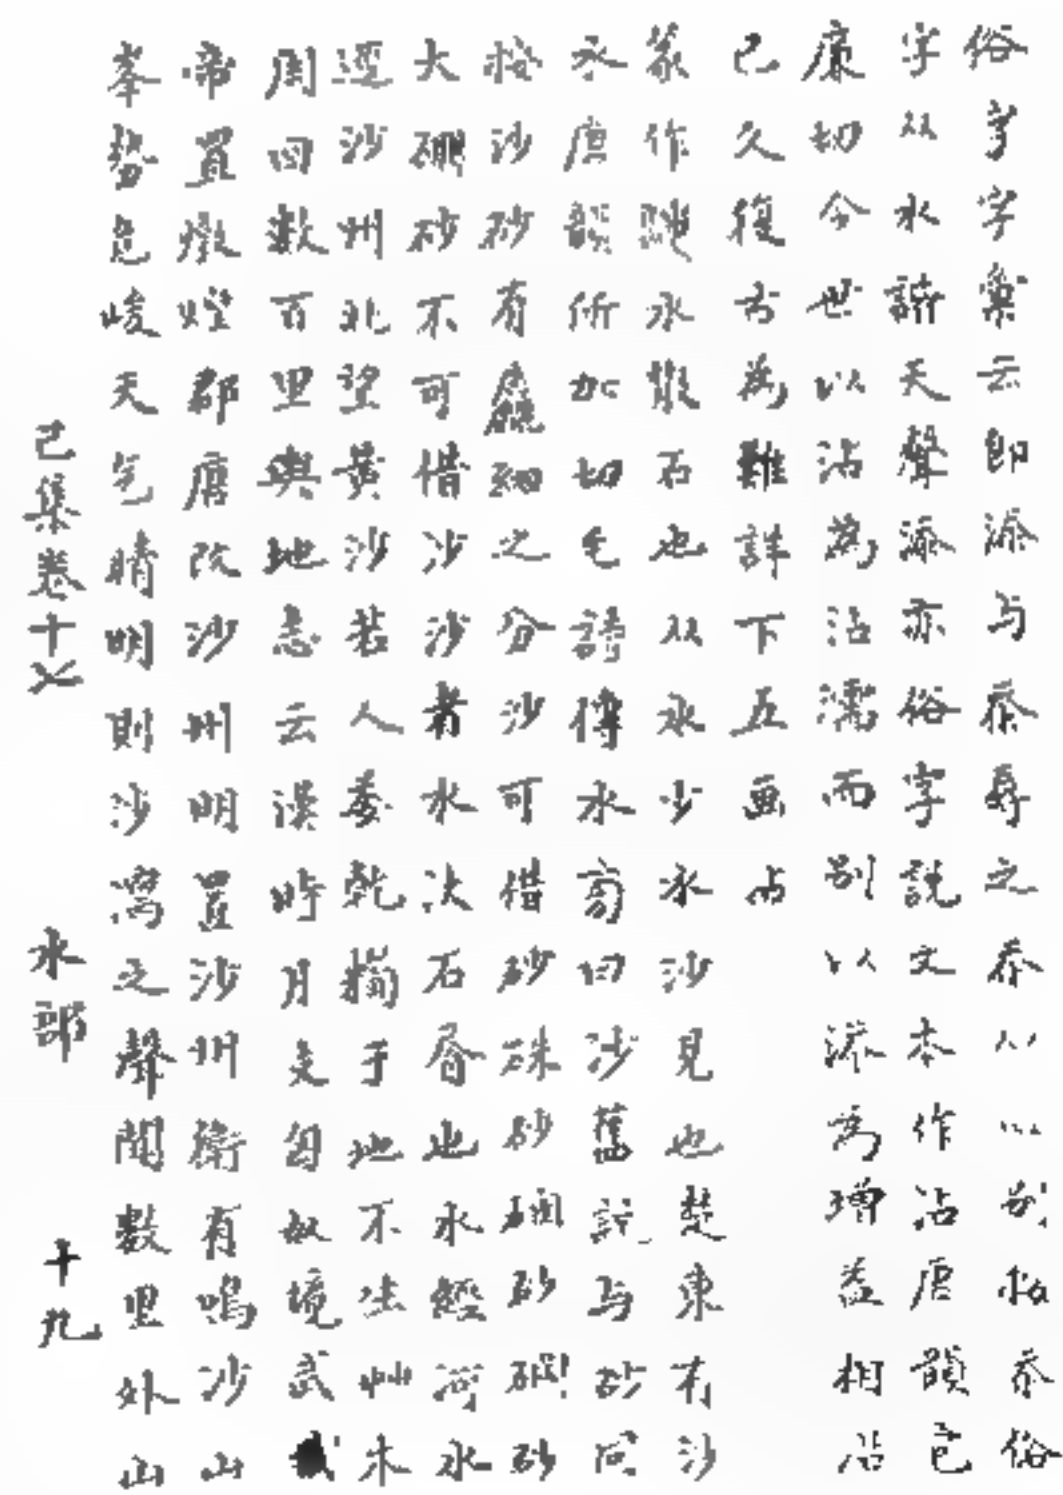 俗字字彙云即添与忝辱之忝从小以別於忝俗
字从水詩天聲添亦俗字說文本作沾唐韻已
廉切今世以沾為沾濡而別以添為增益相沿
已久復古為難詳下五画占
篆作沙水散石也从水少水沙見也楚東有沙
水唐韻所加切毛詩傳水旁曰沙舊說与砂同
按沙砂有麤細之分沙可借砂硃砂硇砂碙砂
大硼砂不可借沙沙者水決石畨也水經河水
逕沙州北望黃沙若人委乾糒于地不生艸木
周回數百里輿地志云漢時月支匈奴境武
帝置燉煌郡唐改沙州明置沙州衛有鳴沙山
峯勢危峻天气晴明則沙鳴之聲聞數里外山
己集卷十七 水部 十九